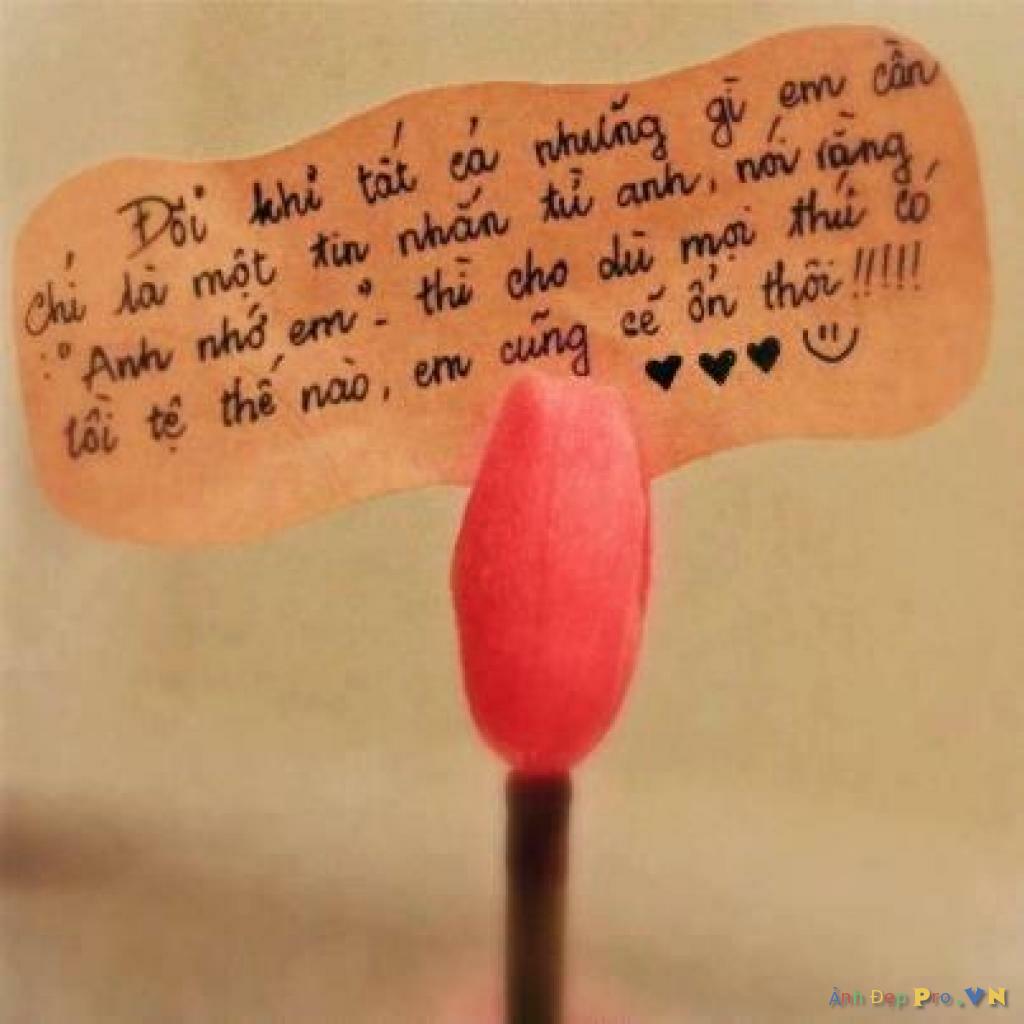 Đôi khi tất cả những gì em cần
chỉ là một tin nhắn từ anh, nói rằng
:"Anh nhớ em"- thì cho dù mọi thứ có
tồi tệ thế nào, em cũng sẽ ổn thôi!!!!!
♥♥♥
ẢnhĐẹpPro.VN